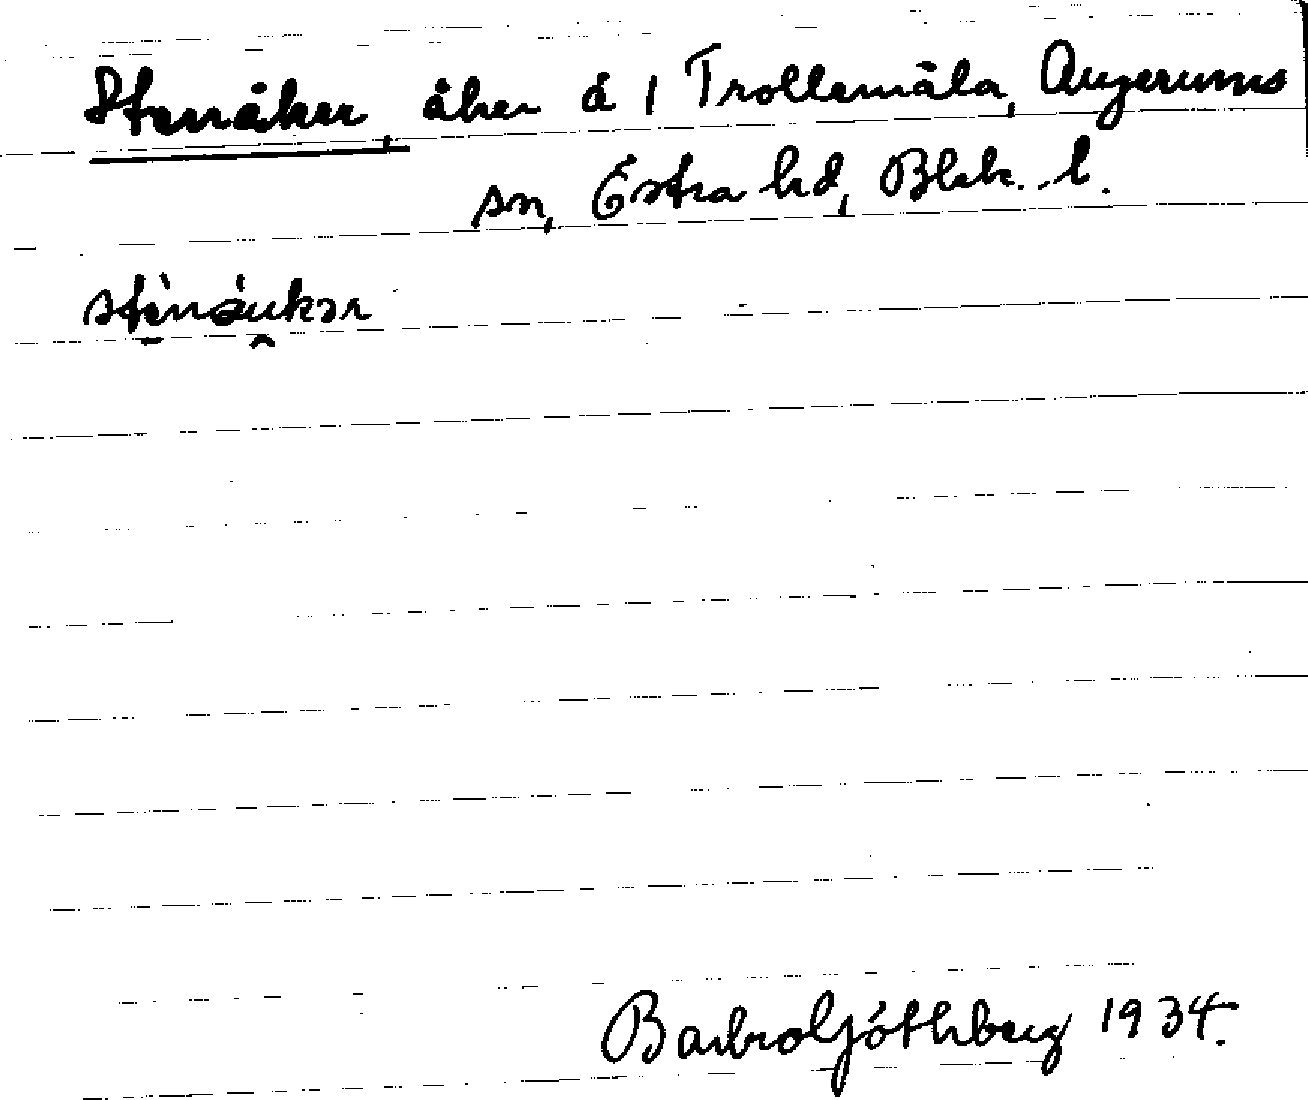 Stenåker, åker å 1 Trollemåla, Augerums
sn, Östra hd, Blek. l.
stènáukər
Barbro Göthberg 1934.